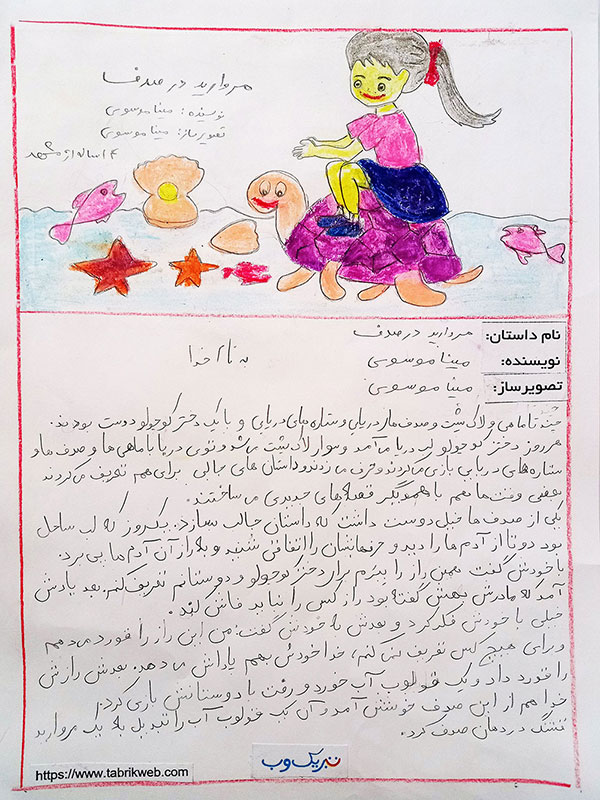 مروارید در صدف
نویسنده: مینا موسوی
تصویرساز: مینا موسوی
۱۴ ساله از مشهد
نام داستان: مروارید در صدف
نویسنده: مینا موسوی
تصویرساز: مینا موسوی
به نام خدا
چند تا ماهی و لاک پشت و صدف های دریایی و ستاره های دریایی و با یک دختر کوچولو دوست بودند.
هر روز دختر کوچولو لب دریا می آمد و سوار لاک پشت می شد و توی دریا با ماهی ها و صدف ها و
ستاره های دریایی بازی می کردند و حرف می زدند و داستان های جالبی برای هم تعریف می کردند
بعضی وقت ها هم با همدیگر قصه های جدیدی می ساختند.
یکی از صدف ها خیلی دوست داشت که داستان جالب بسازد. یک روز که لب ساحل
بود دو تا از آدم ها را دید و حرفهایشان را اتفاقی شنید و به راز آن آدم ها پی برد.
با خودش گفت همین راز را ببرم برای دختر کوچولو و دوستانم تعریف کنم. بعد یادش
آمد که مادرش بهش گفته بود راز کسی را نباید فاش کند.
خیلی با خودش فکر کرد و بعدش به خودش گفت: من این راز را قورت می دهم
و برای هیچ کس تعریف نمی کنم، خدا خودش بهم پاداش می دهد. بعدش رازش
را قورت داد و یک قولوپ آب خورد و رفت با دوستانش بازی کرد.
خدا هم از این صدف خوشش آمد و آن یک قولوپ آب را تبدیل به یک مروارید
قشنگ در دهان صدف کرد.
تبریک وب
https://www.tabrikweb.com